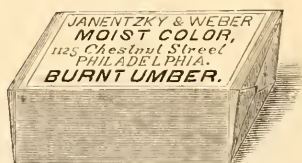 JANENTZKY & WEBER
MOIST COLOR,
1125 Chestnut Street
PHILADELPHIA.
BURNT UMBER.